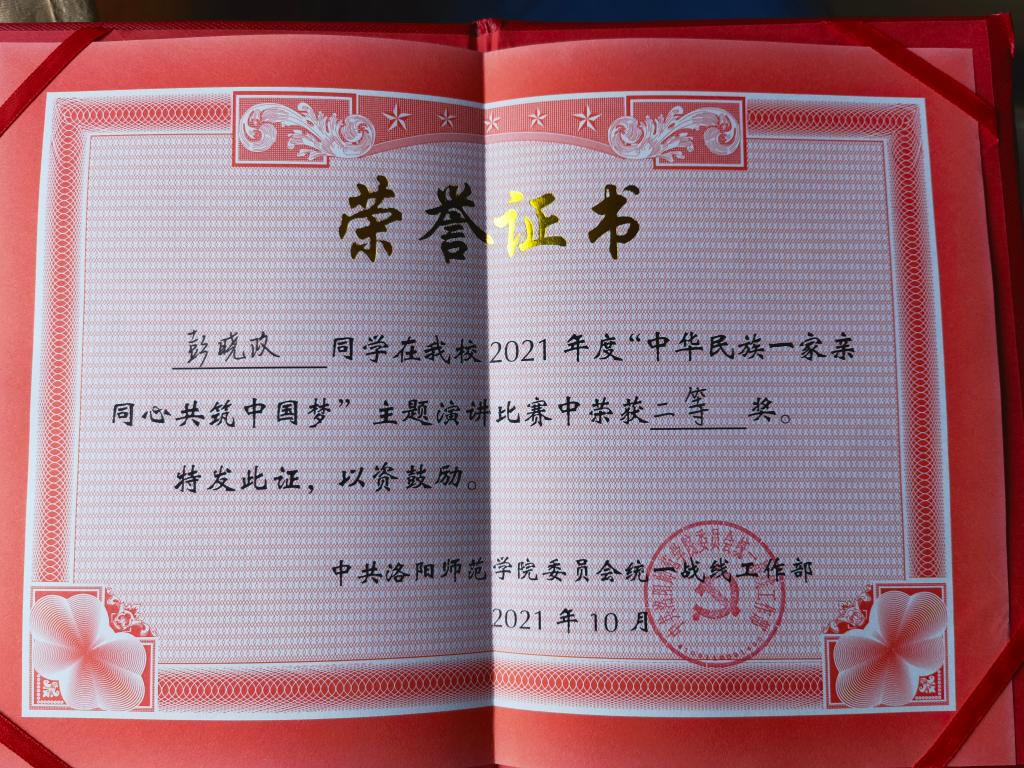 荣誉证书
彭晓政 同学在我校2021年度“中华民族一家亲
同心共筑中国梦”主题演讲比赛中荣获二等奖。
特发此证，以资鼓励。
中共洛阳师范学院委员会统一战线工作部
2021年10月
中共洛阳师范学院委员会统一战线工作部